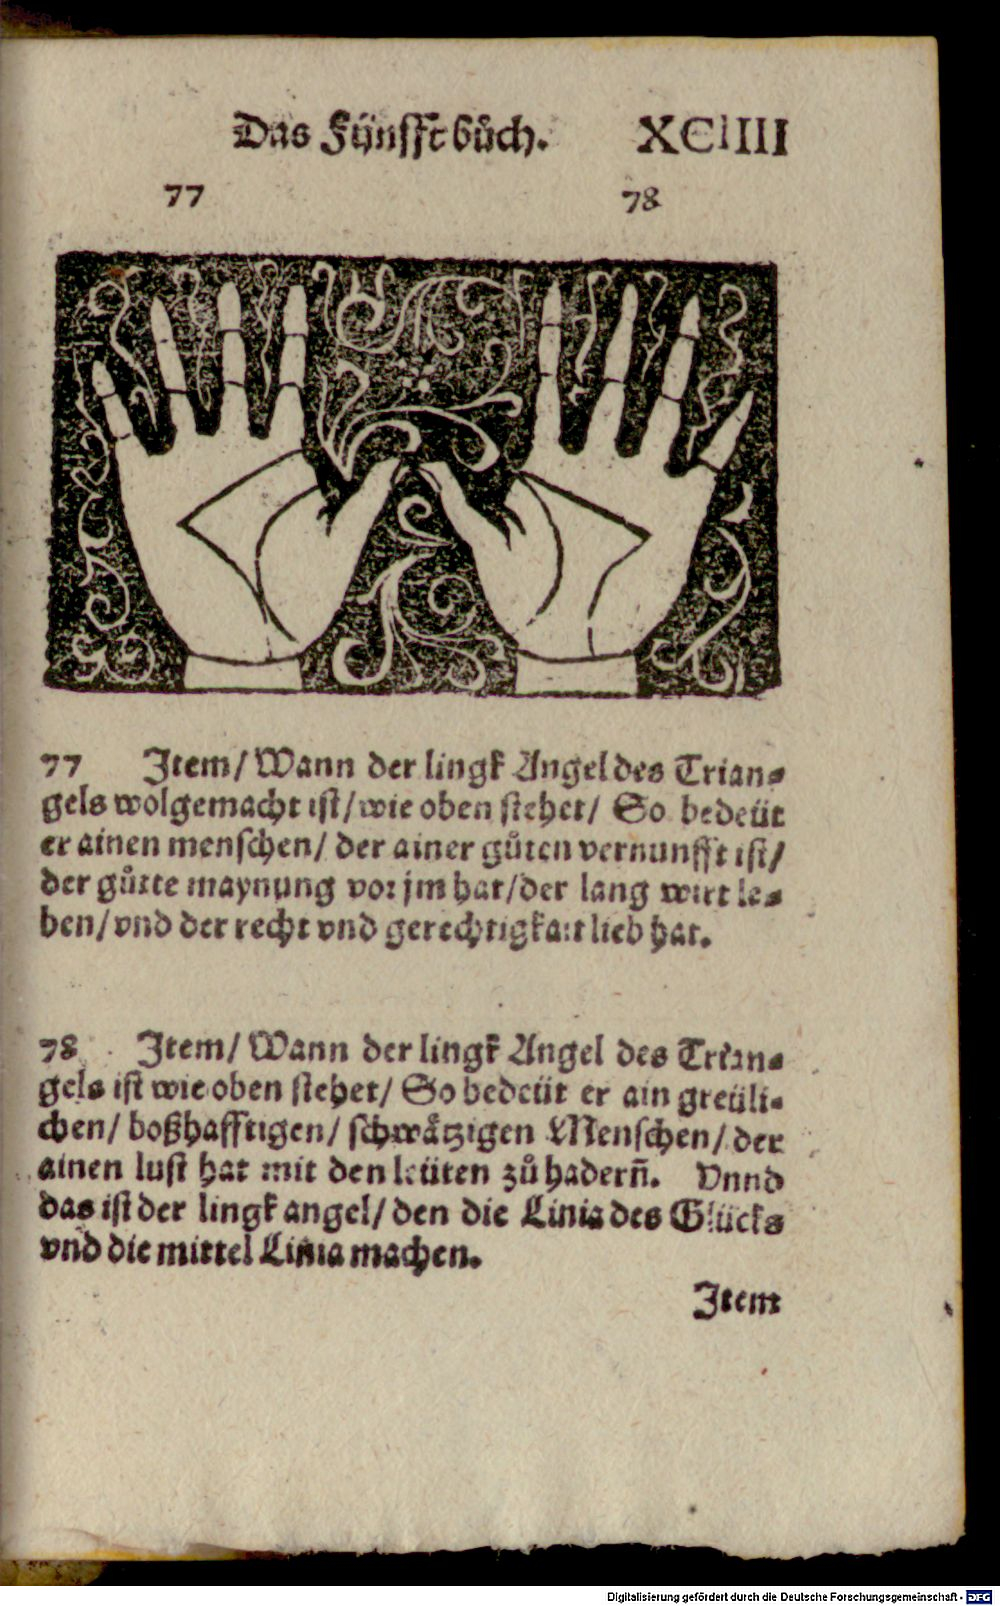 Das Fünfft bůch. XCIIII
77 78
77 Item/ Wann der lingk Angel des Trian⸗
gels wolgemacht ist/ wie oben stehet/ So bedeüt
er ainen menschen/ der ainer gůten vernunfft ist/
der gůtte maynung vor jm hat/ der lang wirt le⸗
ben/ vnd der recht vnd gerechtigkait lieb hat.
78 Item/ Wann der lingk Angel des Trian⸗
gels ist wie oben stehet/ So bedeüt er ain greüli⸗
chen/ boßhafftigen/ schwåtzigen Menschen/ der
ainen lust hat mit den leüten zů hadern̄. Vnnd
das ist der lingk angel/ den die Linia des Glücks
vnd die mittel Linia machen.
Item
Digitalisierung gefördert durch die Deutsche Forschungsgemeinschaft - DFG